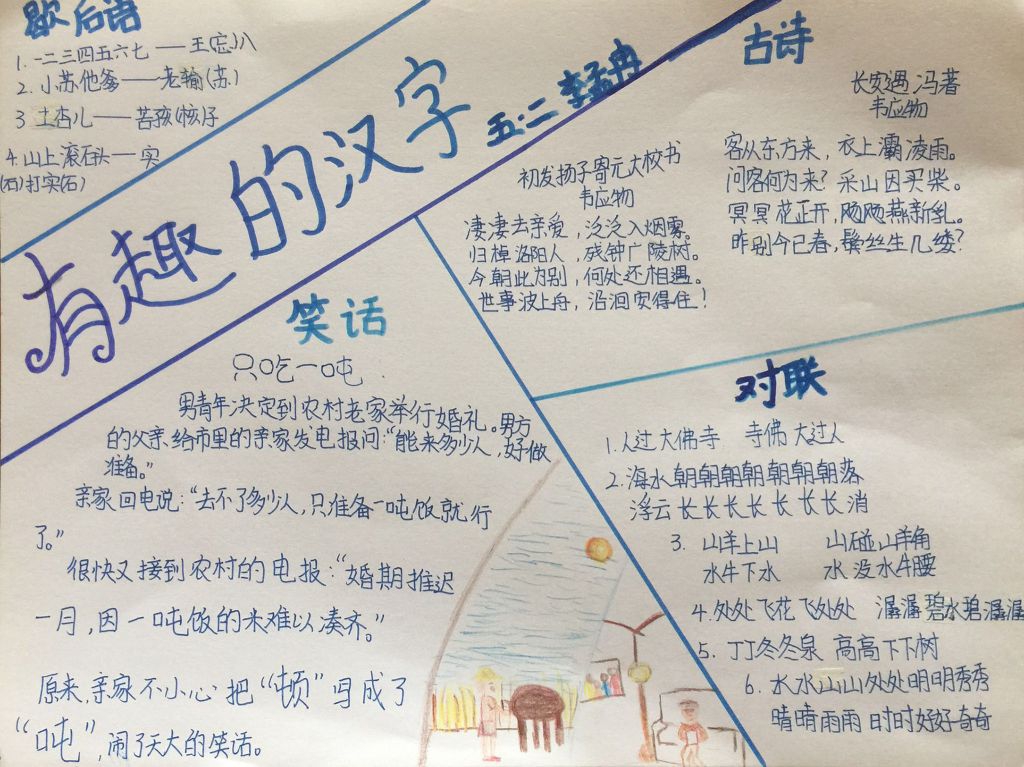 歇后语
1. 一二三四五六七——王(忘)八
2. 小苏他爹——老输(苏)
3 土杏儿——苦孩(核)仔
4. 山上滚石头——实
(石)打实(石)
有趣的汉字
五·二 李孟冉
古诗
长安遇冯著
韦应物
客从东方来，衣上灞凌雨。
问客何为来？采山因买柴。
冥冥花正开，飏飏燕新乳。
昨别今已春，鬓丝生几缕？
初发扬子寄元大校书
韦应物
凄凄去亲爱，泛泛入烟雾。
归棹洛阳人，残钟广陵树。
今朝此为别，何处还相遇。
世事波上舟，沿洄安得住！
笑话
只吃一吨
男青年决定到农村老家举行婚礼。男方
的父亲给市里的亲家发电报问：“能来多少人，好做
准备。”
亲家回电说：“去不了多少人，只准备一吨饭就行
了。”
很快又接到农村的电报：“婚期推迟
一月，因一吨饭的米难以凑齐。”
原来，亲家不小心把“顿”写成了
“吨”，闹了天大的笑话。
对联
1. 人过大佛寺 寺佛大过人
2. 海水朝朝朝朝朝朝朝落
浮云长长长长长长长消
3. 山羊上山 山碰山羊角
水牛下水 水没水牛腰
4. 处处飞花飞处处 潺潺碧水碧潺潺
5. 丁丁冬冬泉 高高下下树
6. 水水山山处处明明秀秀
晴晴雨雨时时好好奇奇